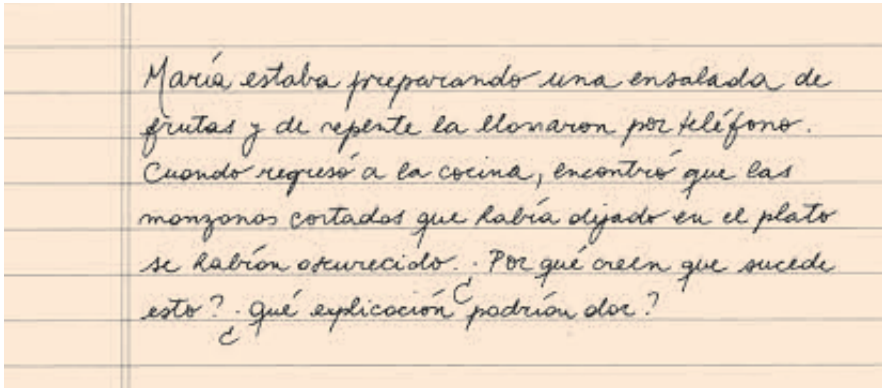 María estaba preparando una ensalada de
frutas y de repente la llamaron por teléfono.
Cuando regresó a la cocina, encontró que las
manzanas cortadas que había dejado en el plato
se habían oscurecido. ¿Por qué creen que sucede
esto? ¿Qué explicación podrían dar?